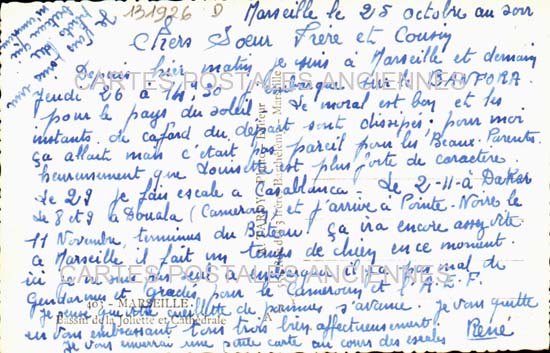 131926 D
Marseille le 25 octobre au soir
Chers Soeur Frère et Cousin
Depuis hier matin je suis à Marseille et demain
CARTES POSTALES ANCIENNES
Jeudi 26 à 14h,30 embarque sur le BANFORA
pour le pays du soleil. Le moral est bon et les
instants de cafard du départ sont dissipés; pour moi
ça allait mais c'était pas pareil pour les Beaux-Parents
heureusement que Louisette est plus forte de caractère.
Le 29 je fais escale à Casablanca. Le 2-11 à Dakar
Le 8 et 9 à Douala (Cameroun) et j'arrive à Pointe-Noire le
11 Novembre, terminus du Bateau! ça ira encore assez vite
à Marseille il fait un temps de chien en ce moment.
CARTES POSTALES ANCIENNES
ici je ne suis pas seul à embarquer il y a pas mal de
Gendarmes et gradés pour le Cameroun et l'A.E.F.
403 - MARSEILLE
je pense que votre cueillette de pommes s'avance. je vous quitte
Bassin de la Joliette et Cathédrale
en vous embrassant tous trois bien affectueusement
je vous enverrai une petite carte au cours des escales René